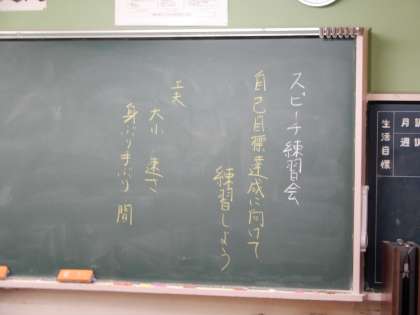 スピーチ練習会
自己目標達成に向けて
練習しよう
工夫
大小 速さ
身ぶり手ぶり 間
生活目標
月
週